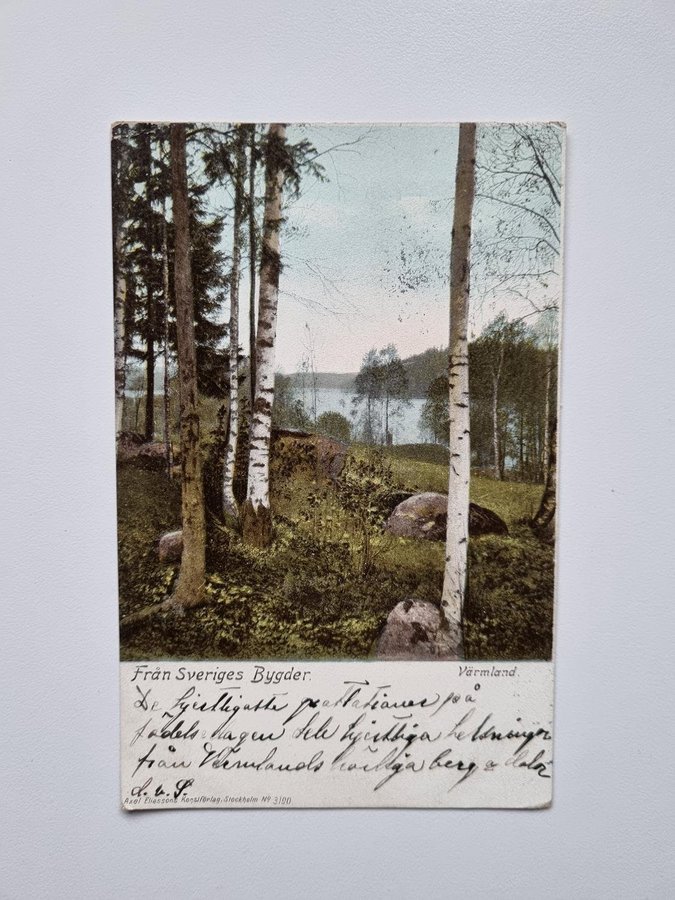 Från Sveriges Bygder.
Värmland.
De hjertligaste grattationer på
födelsedagen dele hjertliga helsningar
från Värmlands härliga berg o dalar
d. v. S.
Axel Eliassons Konstförlag, Stockholm Nº 3190